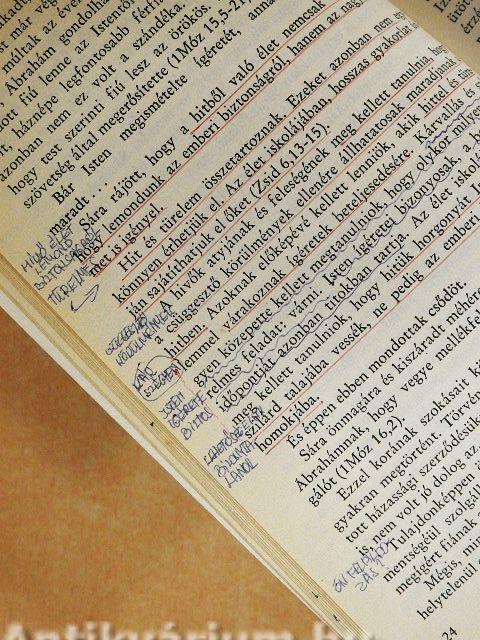 már vége
múltak az évek
Ábrahám gondolhat
ott fiú lenne az Istentől
háznépe legfontosabb férfi
azonban nem ez volt a szándéka.
hogy test szerinti fiú lesz az örökös.
szövetség által megerősítette (1Móz 15,5-21)
Bár Isten megismételte ígéretét, annak
maradt...
Sára rájött, hogy a hitből való élet nemcsak
lemondunk az emberi biztonságról, hanem az nagy
met is igényel.
Hit és türelem összetartoznak. Ezeket azonban nem
könnyen érhetjük el. Az élet iskolájában, hosszas gyakorlat
án sajátíthatjuk el őket (Zsid 6,13-15).
A hívők atyjának és feleségének meg kellett tanulnia, hogy
a csüggesztő körülmények ellenére állhatatosak maradjanak
hitben. Azoknak előképévé kellett lenniök, akik hittel és tü
lemmel várakoznak ígéretek beteljesedésére. Kárvallás és
gyen közepette kellett megtanulniok, hogy olykor milyen
relmes feladat: várni. Isten ígéretei bizonyosak, a
időpontját azonban titokban tartja. Az élet iskolá
meg kellett tanulniok, hogy hitük horgonyát Isten
szilárd talajba vessék, ne pedig az emberi
homokjába.
És éppen ebben mondottak csődöt.
Sára önmagára és kiszáradt méhére
Ábrahámnak, hogy vegye mellékfel
gálót (1Móz 16,2).
Ezzel korának szokásait k
gyakran megtörtént. Törvén
tott házassági szerződésük
is nem volt jó dolog az
Tulajdonképpen
mentségéül szolgál
megígért fiának
Mégis, min
helytelenül
24
HITBŐL ÉLET
BIZTONSÁGRÓL
TÜRELMET
KÖRÜLMÉNYEK
VÁR
SZÉGYEN
ISTEN
ÍGÉRETE
BIZTOS
Antikvárium.hu